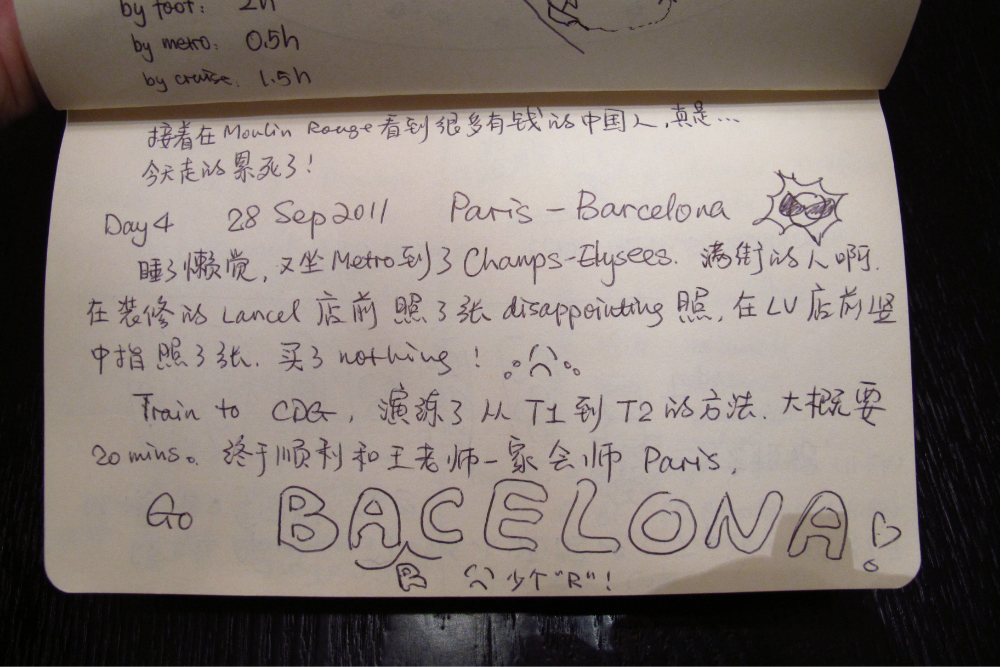 by foot: 2h
by metro: 0.5h
by cruise: 1.5h
接着在Moulin Rouge看到很多有钱的中国人,真是...
今天走的累死了!
Day4 28 Sep 2011 Paris - Barcelona
睡了懒觉,又坐Metro到了Champs-Elysees. 满街的人啊.
在装修的Lancel店前照了张disappointing照,在LV店前竖
中指照了张.买了nothing!
Train to CDG,演练了从T1到T2的方法.大概要
20mins。终于顺利和王老师一家会师Paris,
Go BACELONA!
R 少个"R"!